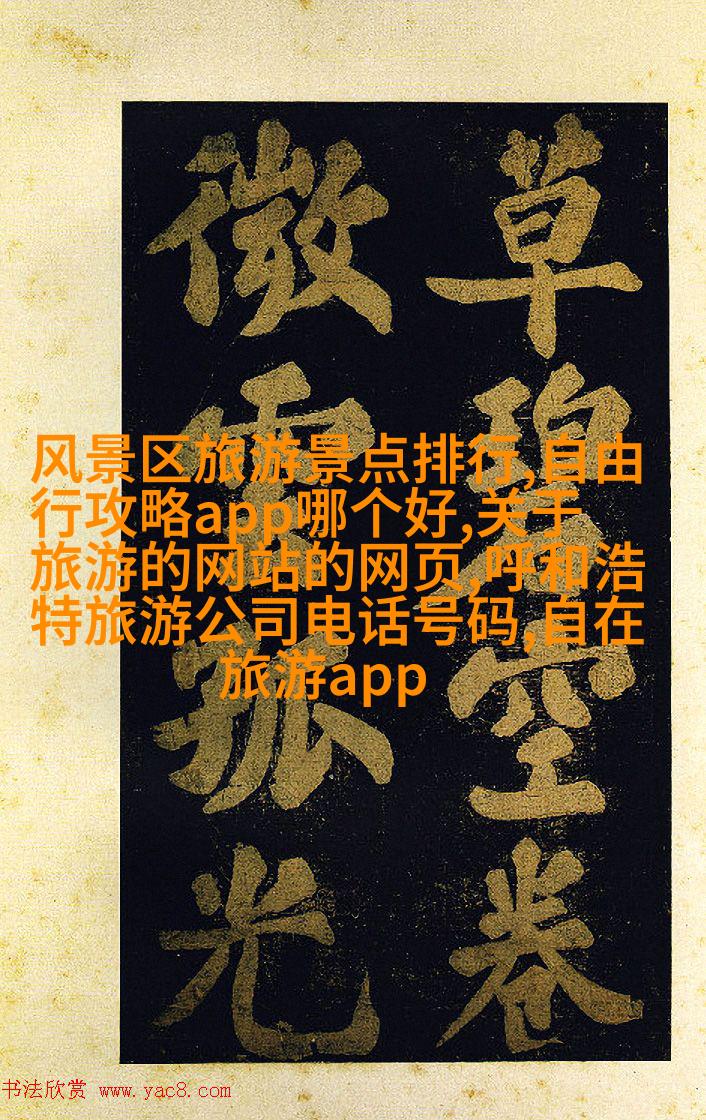 草碧空卷
微雲孤光
风景区旅游景点排行,自由
行攻略app哪个好,关于
旅游的网站的网页,呼和浩
特旅游公司电话号码,自在
旅游app
书法欣赏 www.yac8.com